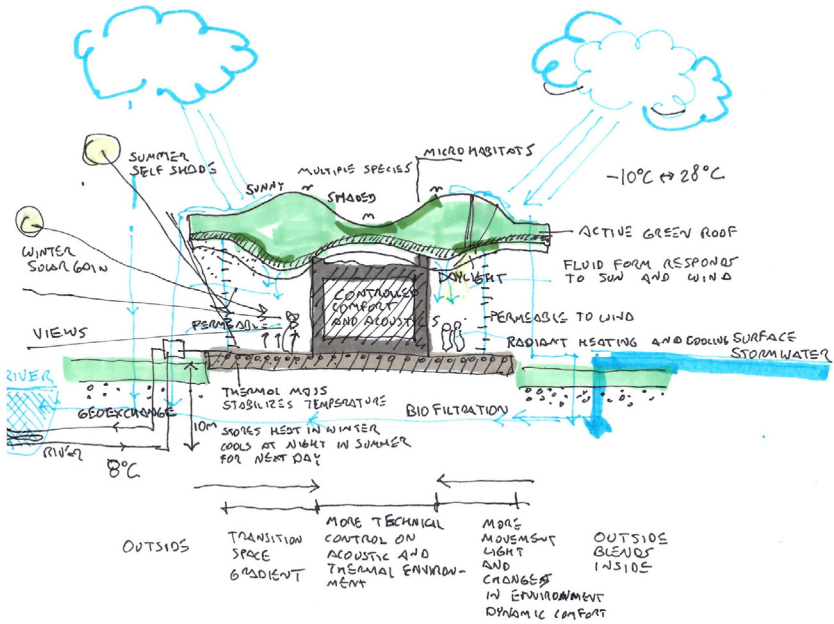 SUMMER
SELF SHADE
SUNNY
MULTIPLE SPECIES
SHADED
MICRO HABITATS
-10°C ↔ 28°C
WINTER
SOLAR GAIN
ACTIVE GREEN ROOF
FLUID FORM RESPONDS
TO SUN AND WIND
DAYLIGHT
CONTROLLED
COMFORT
AND ACOUSTICS
PERMEABLE
PERMEABLE TO WIND
VIEWS
RADIANT HEATING AND COOLING
SURFACE
STORMWATER
RIVER
THERMAL MASS
STABILIZES TEMPERATURE
GEOEXCHANGE
10M
BIOFILTRATION
STORES HEAT IN WINTER
COOLS AT NIGHT IN SUMMER
FOR NEXT DAY
RIVER
8°C
OUTSIDE
TRANSITION
SPACE
GRADIENT
MORE TECHNICAL
CONTROL ON
ACOUSTIC AND
THERMAL ENVIRON-
MENT
MORE
MOVEMENT
LIGHT
AND
CHANGES
IN ENVIRONMENT
DYNAMIC COMFORT
OUTSIDE
BLENDS
INSIDE